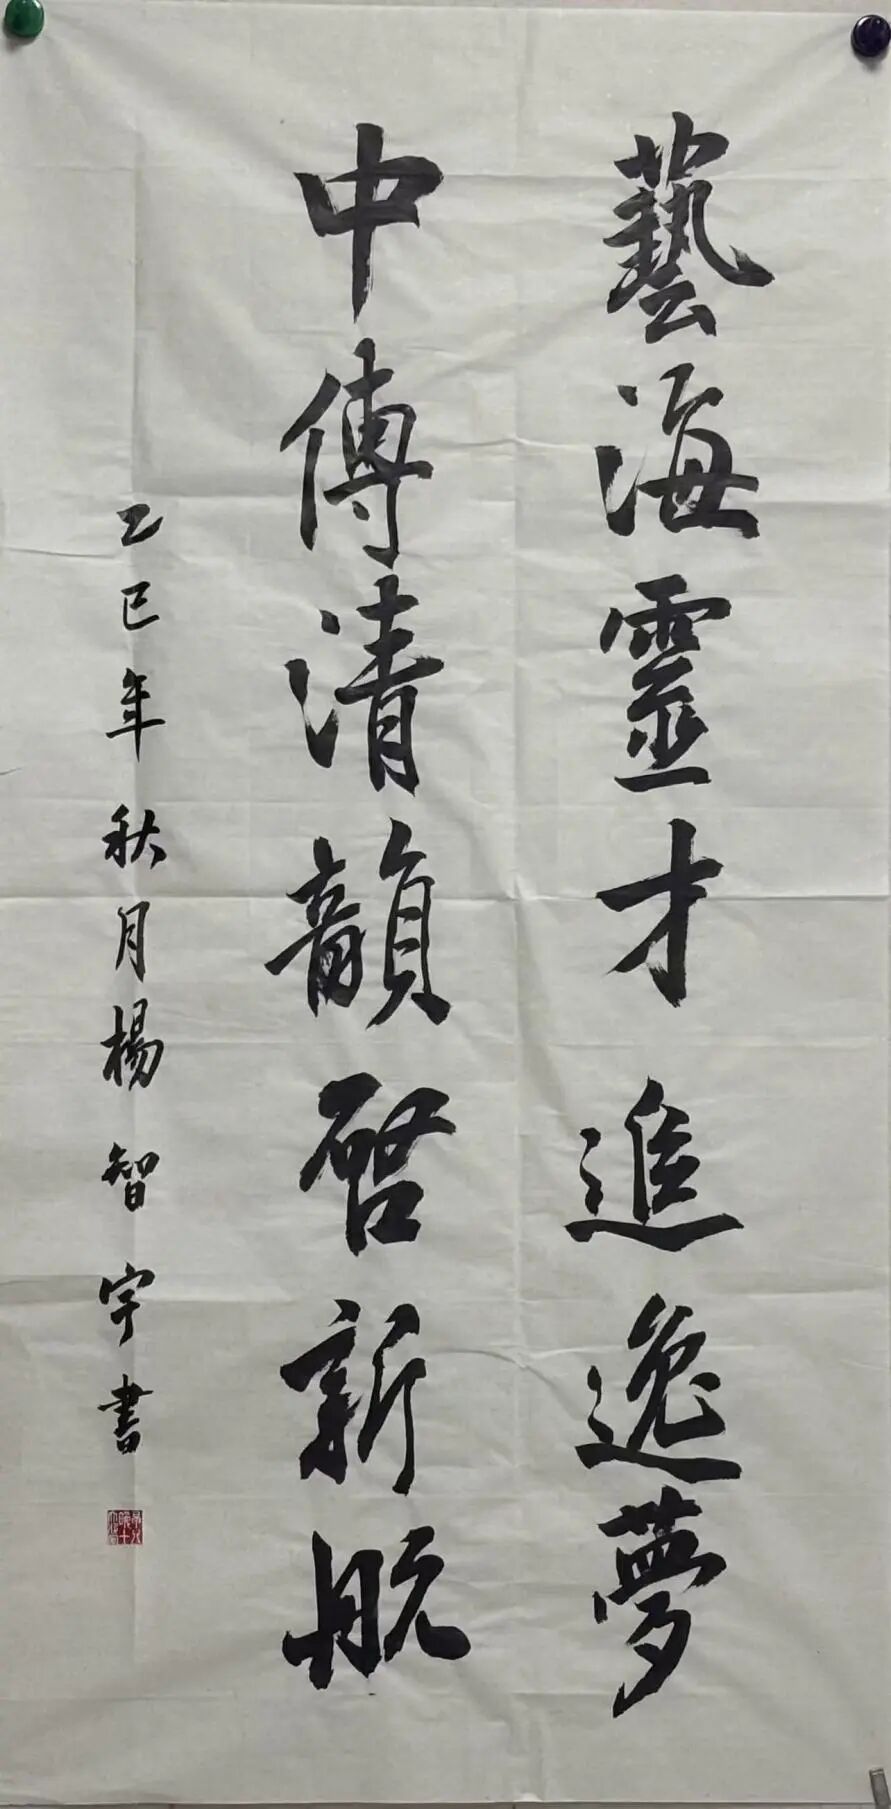 藝海靈才追逸夢
中傳清韻啓新航
乙巳年秋月楊智宇書